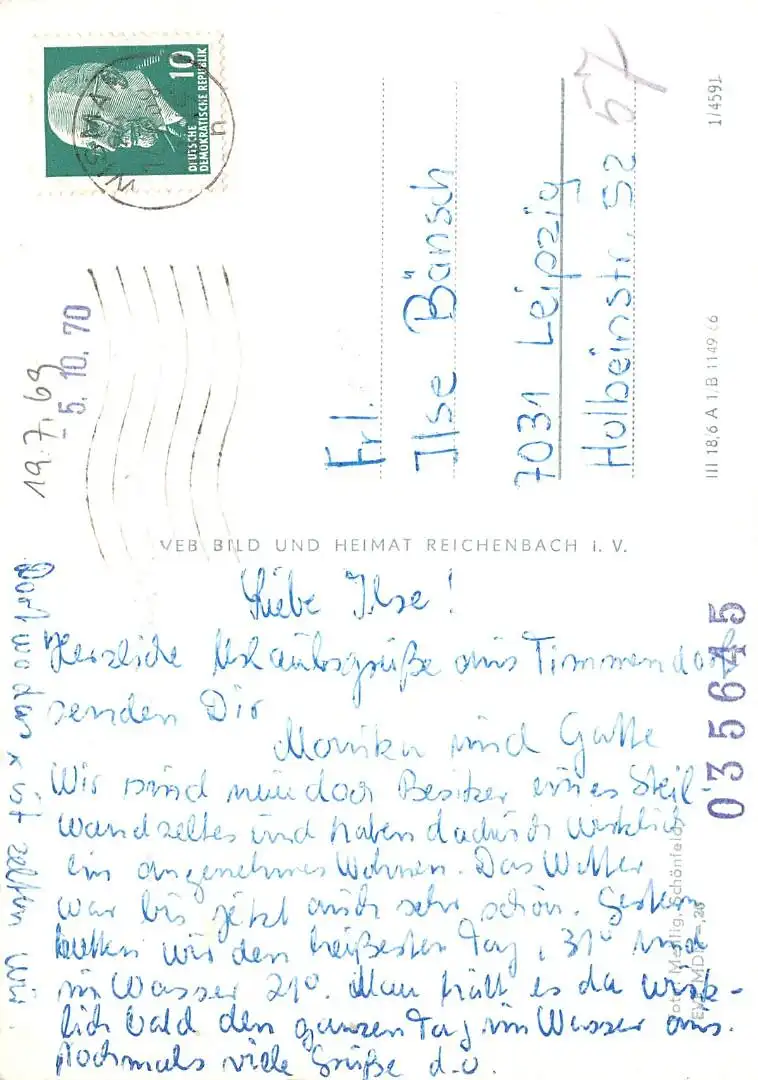 10
DEUTSCHE
DEMOKRATISCHE REPUBLIK
WISMAR
n
57
19.7.69
5.10.70
Frl.
Ilse Bänsch
7031 Leipzig
Holbeinstr. 52
1/4591
III 18/6 A 1/B 1149/66
VEB BILD UND HEIMAT REICHENBACH i. V.
035645
Liebe Ilse!
Herzliche Urlaubsgrüße aus Timmendorf
senden Dir
Monika und Gatte
Wir sind nun doch Besitzer eines Steil-
wandzeltes und haben dadurch wirklich
ein angenehmes Wohnen. Das Wetter
war bis jetzt auch sehr schön. Gestern
hatten wir den heißesten Tag, 31° und
im Wasser 21°. Man hält es da wirk-
lich bald den ganzen Tag im Wasser aus.
Nochmals viele Grüße d.o.
Dort wo das x ist zelten wir
Foto: Meißig, Schönfeld